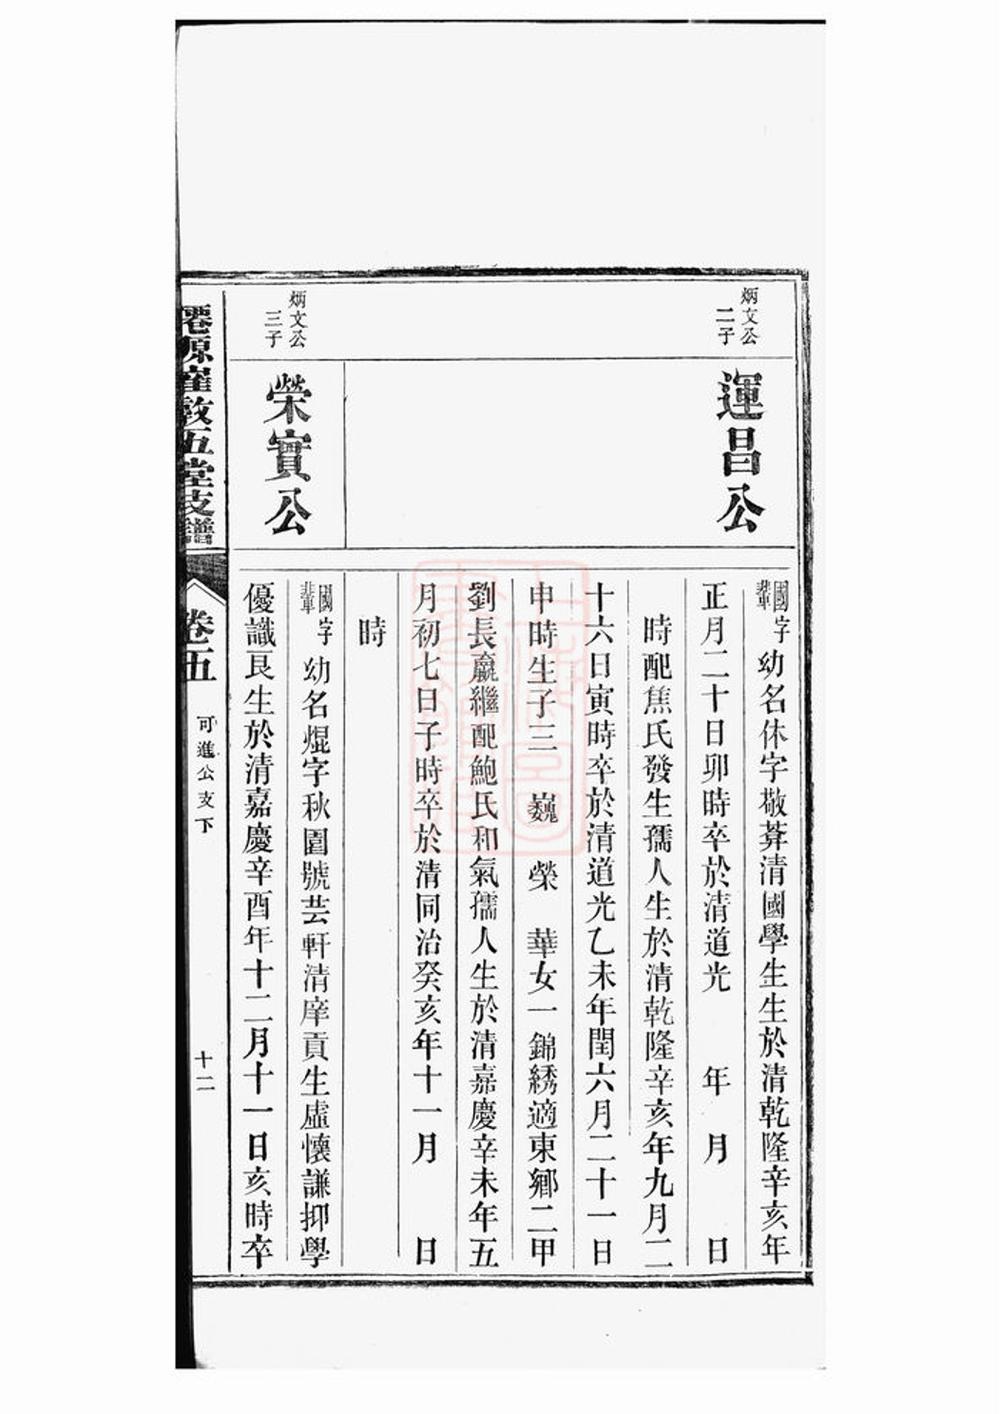 炳文公
二子
運昌公
國字
輩
幼名休字敬葊清國學生生於清乾隆辛亥年
正月二十日卯時卒於清道光　年　月　日
時配焦氏發生孺人生於清乾隆辛亥年九月二
十六日寅時卒於清道光乙未年閏六月二十一日
申時生子三　巍　榮　華女一錦綉適東鄉二甲
劉長贏繼配鮑氏和氣孺人生於清嘉慶辛未年五
月初七日子時卒於清同治癸亥年十一月　日
時
炳文公
三子
榮實公
國字
輩
幼名焜字秋圃號芸軒清庠貢生虛懷謙抑學
優識艮生於清嘉慶辛酉年十二月十一日亥時卒
僊源崔敦五堂支譜
卷五
可進公支下
十二